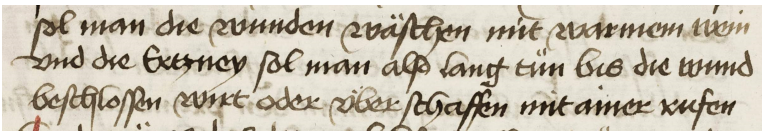 sol man die wunden wäschen mit warmem wein
vnd die Ertzney sol man also lang tün bis die wund
beschlossen wirt oder über schaffen mit ainer rufen